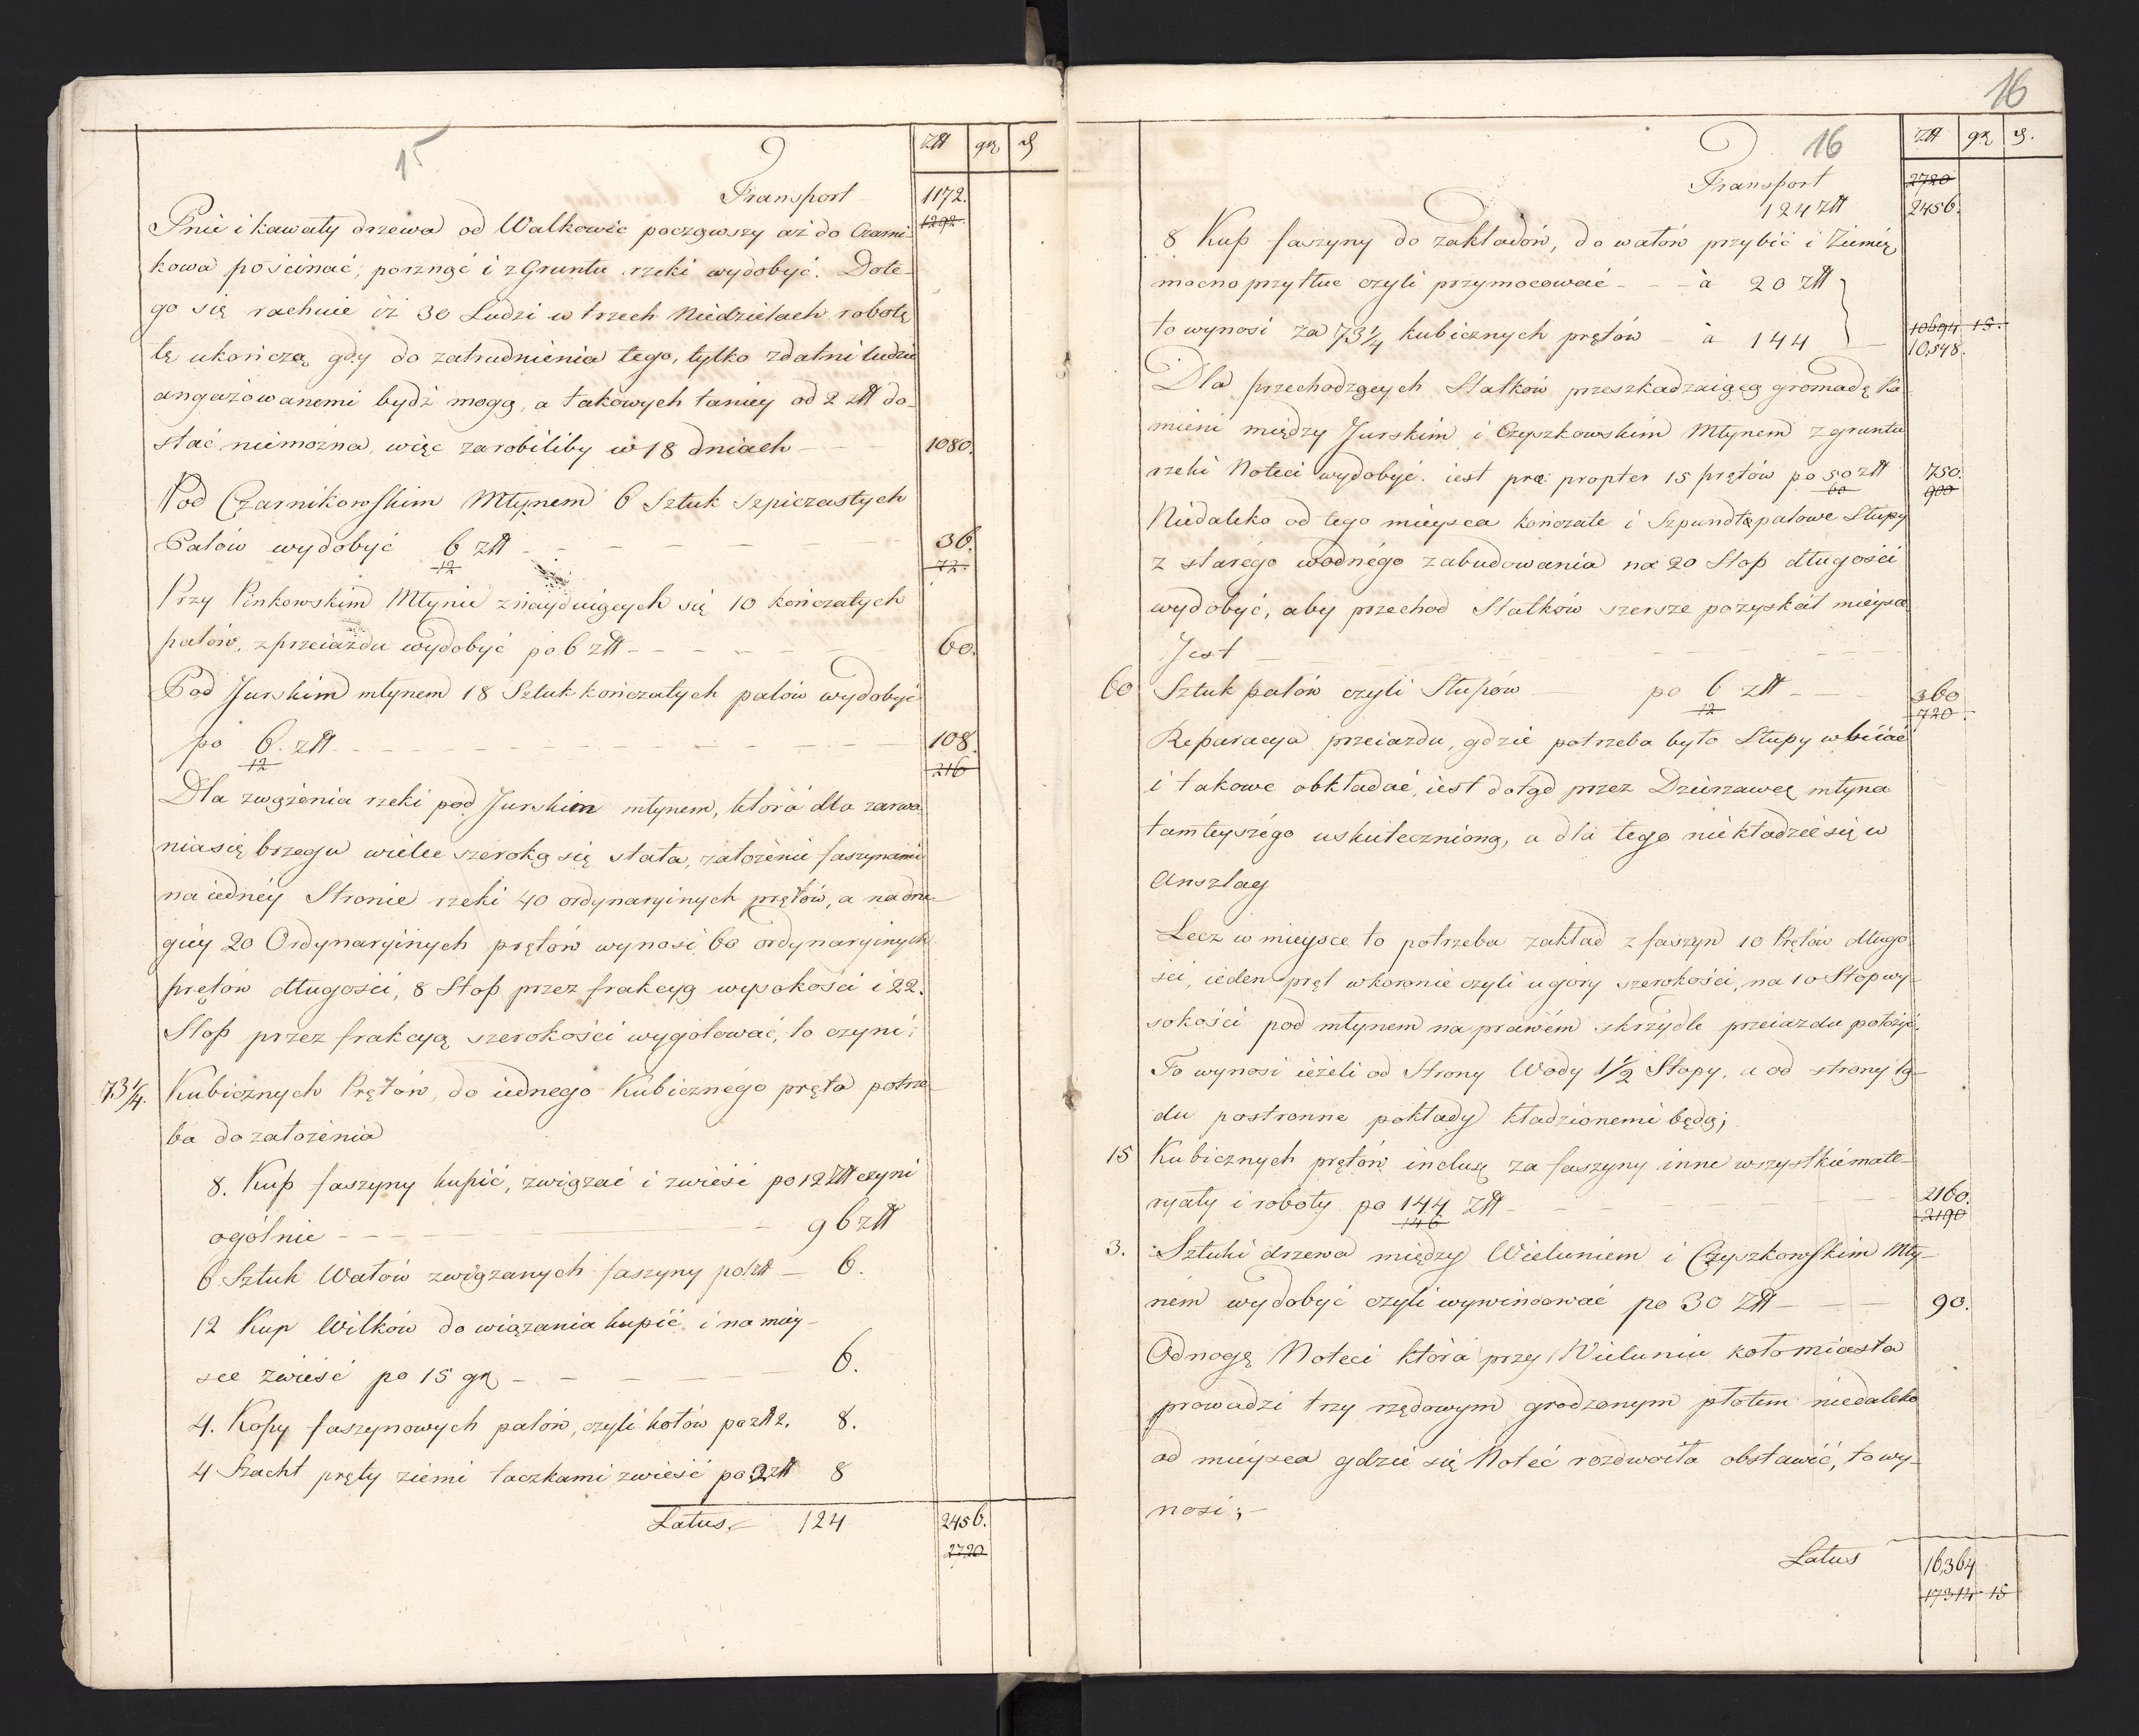 15
złt gr d
Transport 1172.
1292.
Pnie i kawały drzewa od Walkowic począwszy aż do Czarni-
kowa pościnać, porznąć i z Gruntu rzeki wydobyć. Dote-
go się rachuie iż 30 Ludzi w trzech Niedzielach robotę
tę ukończą, gdy do zatrudnienia tego, tylko zdatni ludzie
angażowanemi bydź mogą, a takowych taniey od 2 złt do-
stać niemożna, więc zarobiliby w 18 dniach — 1080.
Pod Czarnikowskim Młynem 6 Sztuk Szpiczastych
Palów wydobyć 6 złt — 36.
12 72.
Przy Pinkowskim Młynie znayduiących się 10 kończatych
palów, z przeiazdu wydobyć po 6 złt — 60.
Pod Jurskim młynem 18 Sztuk kończatych palów wydobyć
po 6. złt — 108.
12 216
Dla zwążenia rzeki pod Jurskim młynem, która dla zarwa-
nia się brzegu wiele szeroką się stała, założenie faszynami
na iednéy Stronie rzeki 40 ordynaryinych prętów, a na dru-
giéy 20 Ordynaryinych prętów wynosi 60 ordynaryinych
prętów długości, 8 Stop przez frakcyą wysokości i 22.
Stop przez frakcyą szerokości wygotować, to czyni:
73 1/4. Kubicznych Prętów, do iednego Kubicznégo pręta potrze-
ba do założenia
8. Kup faszyny kupić, związać i zwieść po 12 złt czyni
ogólnie — 96 złt
6 Sztuk Wałów związanych faszyny po 1 złt — 6.
12 Kup Witków do wiązania kupić i na miey-
sce zwieść po 15 gr — 6.
4. Kopy faszynowych palów, czyli kołów po złt 2. 8.
4 Szacht pręty ziemi taczkami zwieść po 2 złt 8
Latus 124 2456.
2720
16
16
złt gr d.
Transport 2720
124 złt 2456.
8 Kup faszyny do zakładów, do wałów przybić i Ziemią
mocno przytłuc czyli przymocować - - - à 20 złt
to wynosi za 73 1/4 kubicznych prętów — à 144 — 10694 15.
10,548.
Dla przechodzących Statków przeszkadzaiącą gromadę Ka-
mieni między Jurskim i Czyszkowskim Młynem z gruntu
rzeki Noteci wydobyć. iest præ propter 15 prętów po 50 złt 750.
60 900
Niedaleko od tego mieysca kończate i Szpundtpalowe Słupy
z starégo wodnégo zabudowania na 20 Stop długości
wydobyć, aby przechod Statków szersze pozyskał mieysce
Jest
60 Sztuk palów czyli Słupów po 6 złt — 360
12 720.
Reparacya przeiazdu, gdzie potrzeba było Słupy wbiiać
i takowe obkładać, iest dotąd przez Dzierzawcę młyna
tamteyszégo uskutecznioną, a dla tego niekładzie się w
Anszlag
Lecz w mieysce to potrzeba zakład z faszyn 10 Prętów długo-
ści, ieden pręt w koronie czyli u góry szerokości, na 10 Stop wy-
sokości pod młynem na prawém skrzydle przeiazdu położyć,
To wynosi ieżeli od Strony Wody 1 1/2 Stopy, a od strony lą-
du postronne pokłady kładzionemi będą;
15 Kubicznych prętów, incluse za faszyny inne wszystkie mate-
ryały i roboty po 144 złt — 2160.
146 2190
3. Sztuki drzewa między Wieluniem i Czyszkowskim Mły-
ném wydobyć czyli wywindować po 30 złt — 90.
Odnogę Noteci która przy Wieluniu koło miasta
prowadzi trzy rzędowym grodzonym płotem niedaleko
od mieysca gdzie się Noteć rozdwoiła obstawić, to wy-
nosi; —
Latus 16,364
17314 15